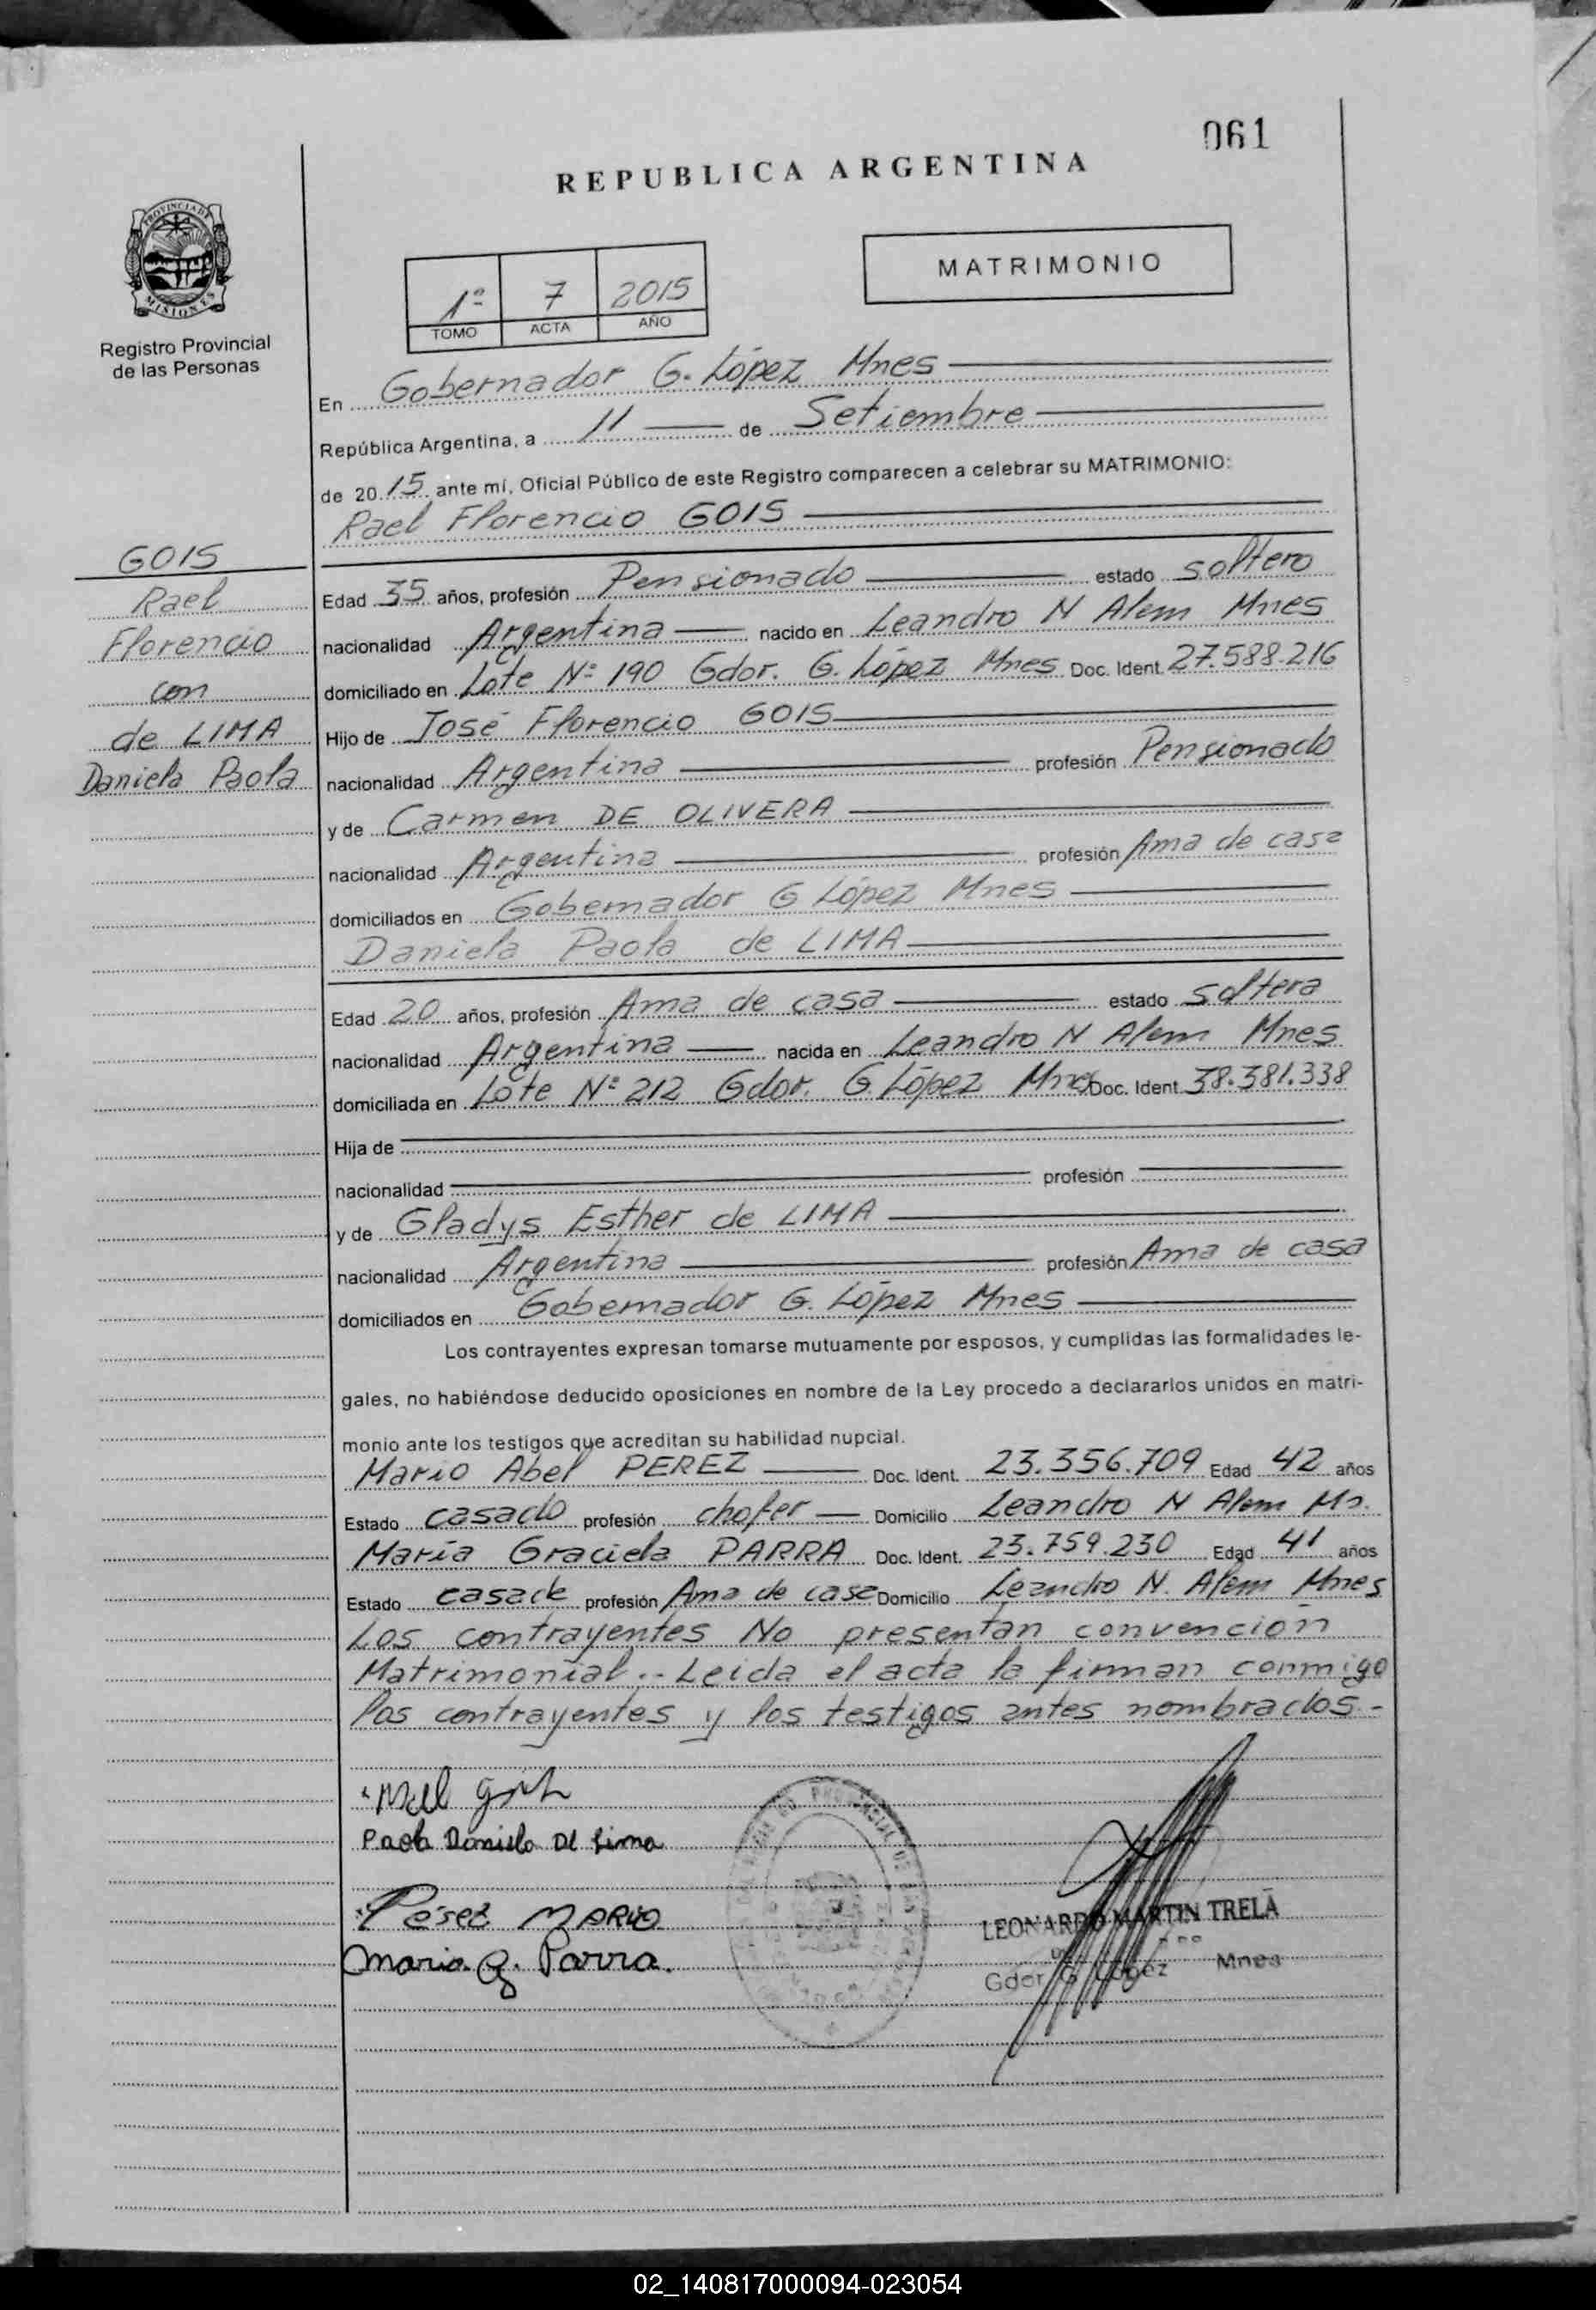 061
REPUBLICA ARGENTINA
PROVINCIA DE
MISIONES
Registro Provincial
de las Personas
1º 7 2015
TOMO ACTA AÑO
MATRIMONIO
En Gobernador G. López Mnes
República Argentina, a 11 de Setiembre
de 2015 ante mí, Oficial Público de este Registro comparecen a celebrar su MATRIMONIO:
Rael Florencio GOIS
GOIS
Rael
Florencio
con
de LIMA
Daniela Paola
Edad 35 años, profesión Pensionado estado soltero
nacionalidad Argentina nacido en Leandro N Alem Mnes
domiciliado en Lote Nº 190 Gdor. G. López Mnes Doc. Ident. 27.588.216
Hijo de José Florencio GOIS
nacionalidad Argentina profesión Pensionado
y de Carmen DE OLIVERA
nacionalidad Argentina profesión Ama de casa
domiciliados en Gobernador G López Mnes
Daniela Paola de LIMA
Edad 20 años, profesión Ama de casa estado soltera
nacionalidad Argentina nacida en Leandro N Alem Mnes
domiciliada en Lote Nº 212 Gdor. G López Mnes Doc. Ident. 38.381.338
Hija de
nacionalidad profesión
y de Gladys Esther de LIMA
nacionalidad Argentina profesión Ama de casa
domiciliados en Gobernador G. López Mnes
Los contrayentes expresan tomarse mutuamente por esposos, y cumplidas las formalidades le-
gales, no habiéndose deducido oposiciones en nombre de la Ley procedo a declararlos unidos en matri-
monio ante los testigos que acreditan su habilidad nupcial.
Mario Abel PEREZ Doc. Ident. 23.356.709 Edad 42 años
Estado casado profesión chofer Domicilio Leandro N Alem Ms.
María Graciela PARRA Doc. Ident. 23.759.230 Edad 41 años
Estado casada profesión Ama de casa Domicilio Leandro N. Alem Mnes
Los contrayentes No presentan convención
Matrimonial.- Leida el acta la firman conmigo
los contrayentes y los testigos antes nombrados.-
Paola Daniela De Lima
Pérez MARIO
Maria G. Parra.
LEONARDO MARTIN TRELA
Gdor G López Mnes
02_140817000094-023054